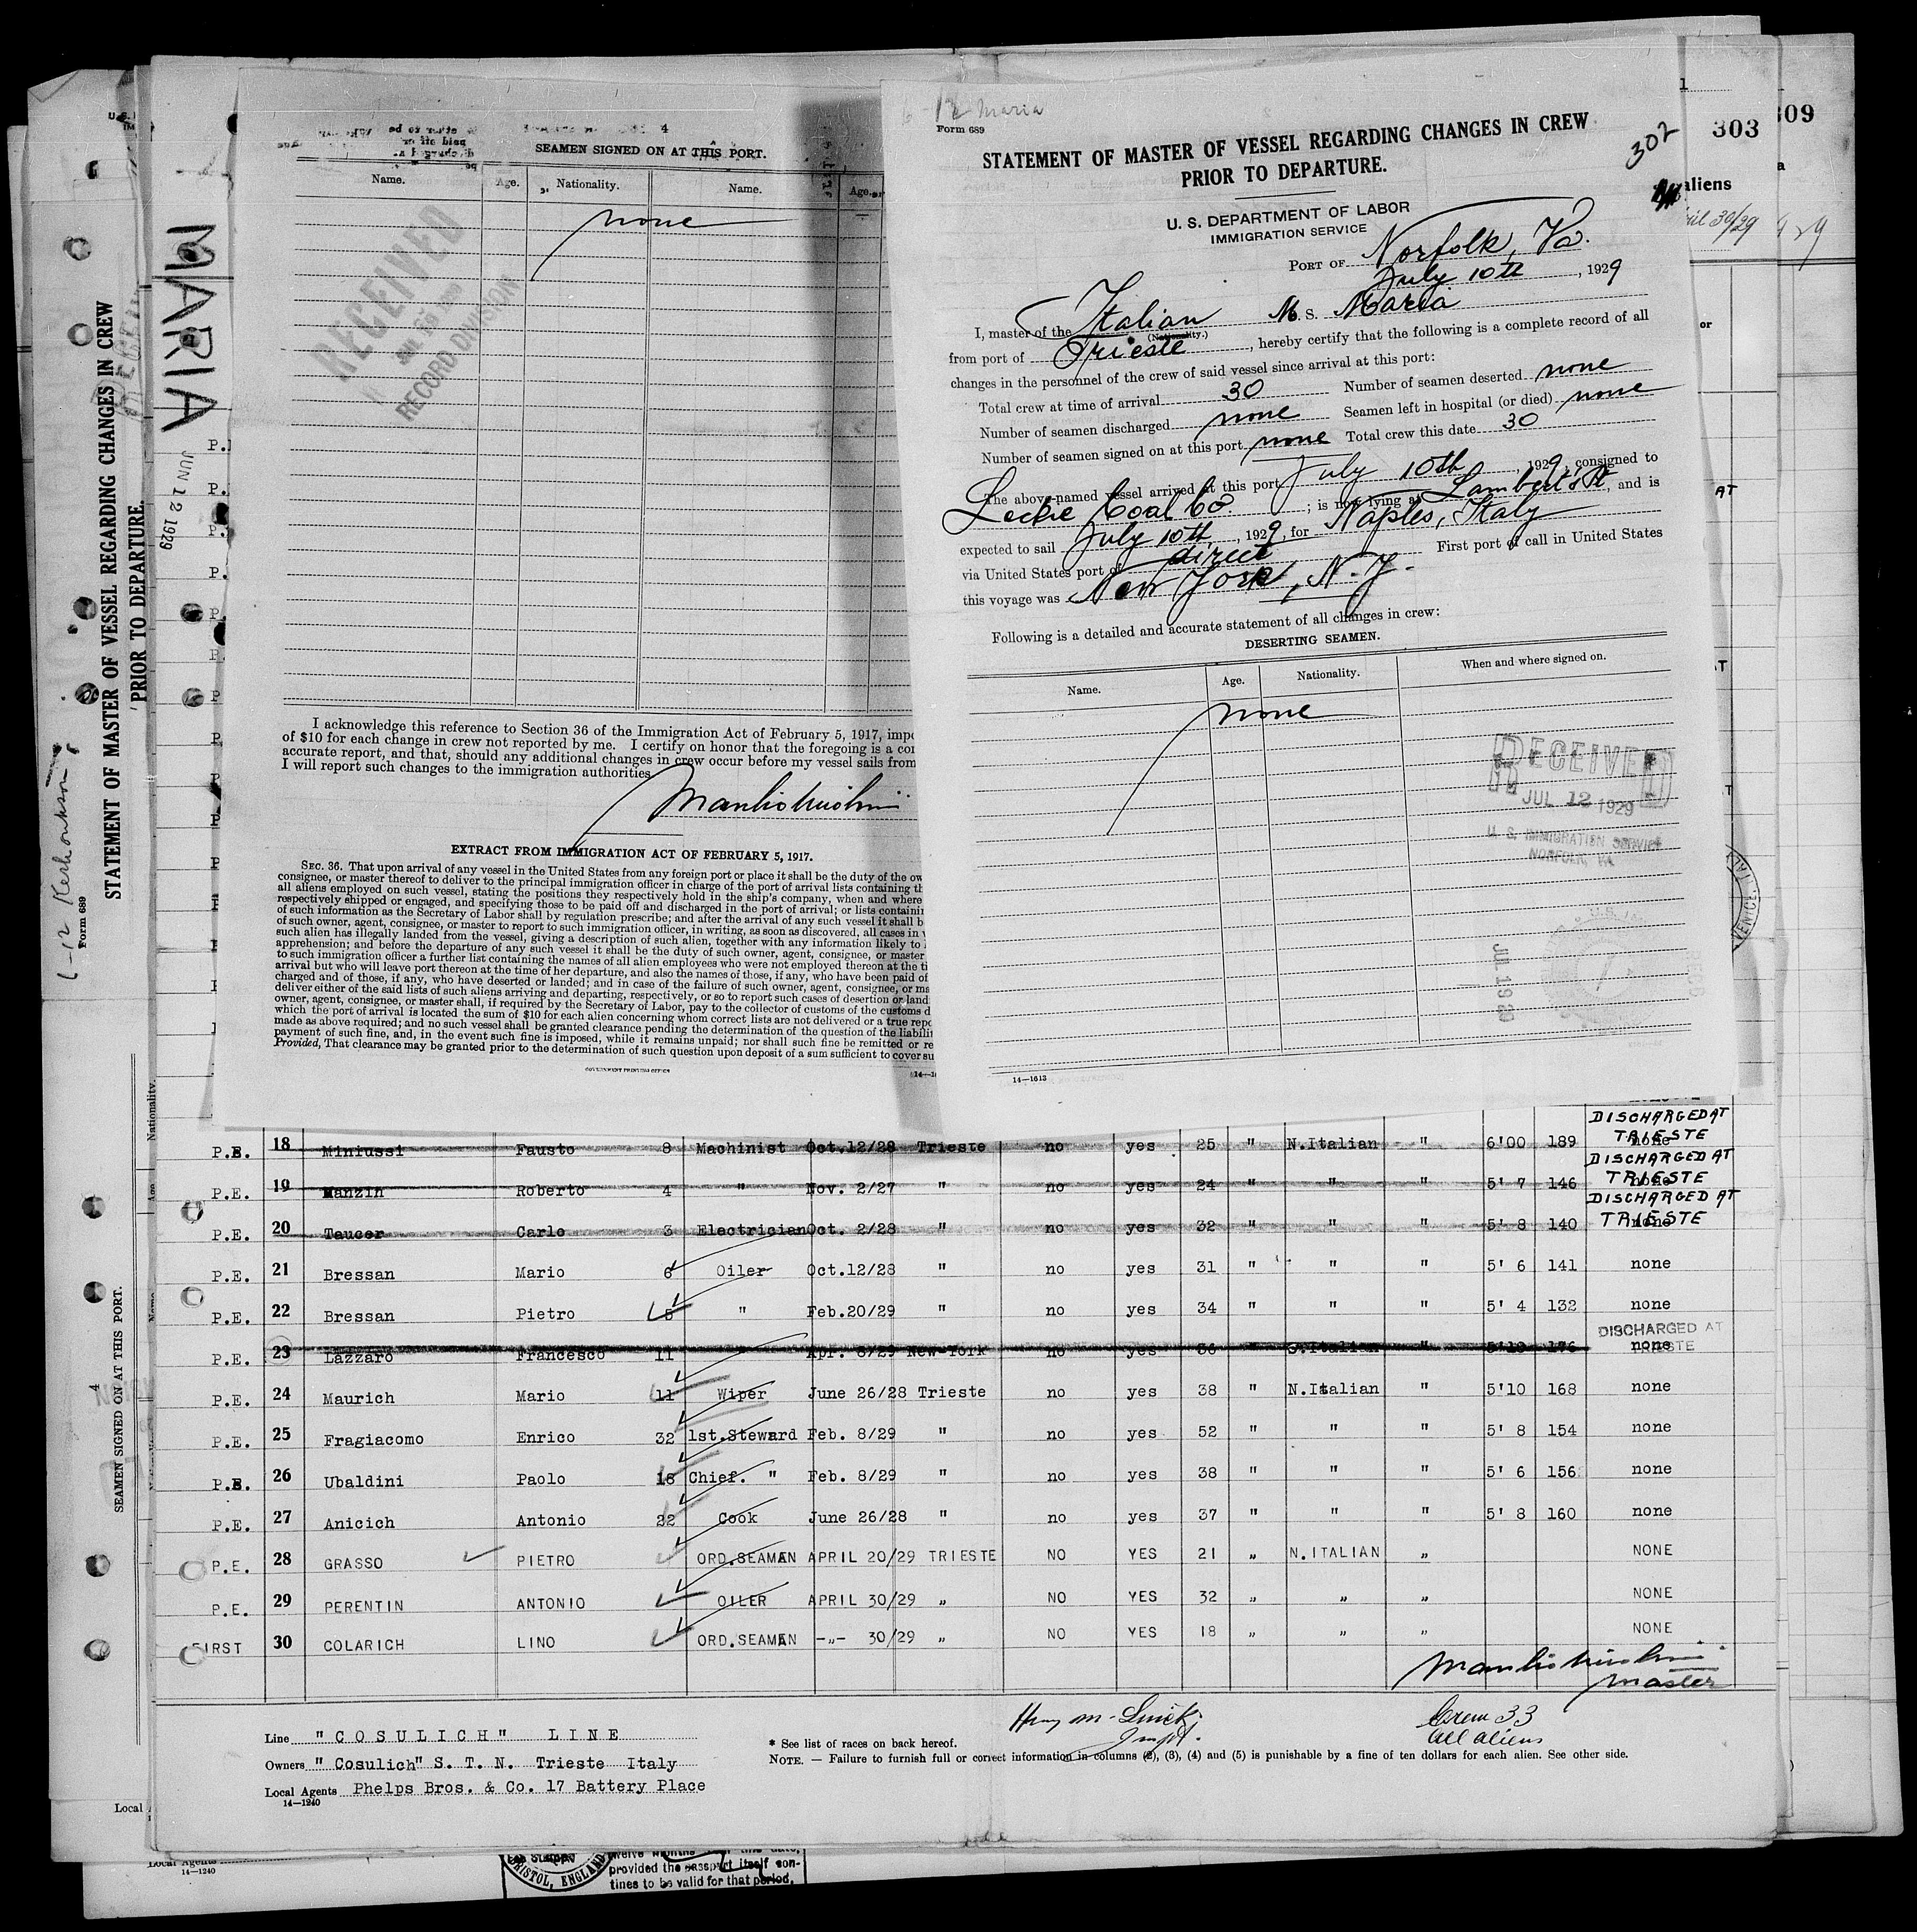 SEAMEN SIGNED ON AT THIS PORT.
Name. Age. Nationality. Name. Age.
none
RECEIVED
RECORD DIVISION
I acknowledge this reference to Section 36 of the Immigration Act of February 5, 1917,
of $10 for each change in crew not reported by me. I certify on honor that the foregoing is a
accurate report, and that, should any additional changes in crew occur before my vessel sails from
I will report such changes to the immigration authorities
EXTRACT FROM IMMIGRATION ACT OF FEBRUARY 5, 1917.
SEC. 36. That upon arrival of any vessel in the United States from any foreign port or place it shall be the duty of the
consignee, or master thereof to deliver to the principal immigration officer in charge of the port of arrival lists containing
all aliens employed on such vessel, stating the positions they respectively hold in the ship's company, when and where
respectively shipped or engaged, and specifying those to be paid off and discharged in the port of arrival; or lists
of such information as the Secretary of Labor shall by regulation prescribe; and after the arrival of any such vessel it shall
of such owner, agent, consignee, or master to report to such immigration officer, in writing, as soon as discovered, all cases in
such alien has illegally landed from the vessel, giving a description of such alien, together with any information likely to
apprehension; and before the departure of any such vessel it shall be the duty of such owner, agent, consignee, or master
to such immigration officer a further list containing the names of all alien employees who were not employed thereon at the
arrival but who will leave port thereon at the time of her departure, and also the names of those, if any, who have been paid
charged and of those, if any, who have deserted or landed; and in case of the failure of such owner, agent, consignee, or
deliver either of the said lists of such aliens arriving and departing, respectively, or so to report such cases of desertion or
owner, agent, consignee, or master shall, if required by the Secretary of Labor, pay to the collector of customs of the customs
which the port of arrival is located the sum of $10 for each alien concerning whom correct lists are not delivered or a true
made as above required; and no such vessel shall be granted clearance pending the determination of the question of the
payment of such fine, and, in the event such fine is imposed, while it remains unpaid; nor shall such fine be remitted or
Provided, That clearance may be granted prior to the determination of such question upon deposit of a sum sufficient to cover
GOVERNMENT PRINTING OFFICE
Maria
Form 689
STATEMENT OF MASTER OF VESSEL REGARDING CHANGES IN CREW
PRIOR TO DEPARTURE.
302
U. S. DEPARTMENT OF LABOR
IMMIGRATION SERVICE
PORT OF Norfolk, Va.
July 10th, 1929
I, master of the Italian M. S. Maria
(Nationality.)
from port of Trieste, hereby certify that the following is a complete record of all
changes in the personnel of the crew of said vessel since arrival at this port:
Total crew at time of arrival 30 Number of seamen deserted none
Number of seamen discharged none Seamen left in hospital (or died) none
Number of seamen signed on at this port none Total crew this date 30
The above-named vessel arrived at this port July 10th, 1929, consigned to
Coal Co; is now lying at Lambert's Pt, and is
expected to sail July 10th, 1929, for Naples, Italy
via United States port of direct First port of call in United States
this voyage was New York, N.Y.
Following is a detailed and accurate statement of all changes in crew:
DESERTING SEAMEN.
Name. Age. Nationality. When and where signed on.
none
RECEIVED
JUL 12 1929
U. S. IMMIGRATION SERVICE
NORFOLK, VA
14—1613
303
309
aliens
MARIA
JUN 12 1929
Form 689
STATEMENT OF MASTER OF VESSEL REGARDING CHANGES IN CREW
PRIOR TO DEPARTURE.
SEAMEN SIGNED ON AT THIS PORT.
Name. Age. Nationality.
DISCHARGED AT
TRIESTE
P.E. 18 Miniussi Fausto 8 Machinist Oct.12/28 Trieste no yes 25 " N.Italian " 6'00 189 none
DISCHARGED AT
TRIESTE
P.E. 19 Manzin Roberto 4 " Nov. 2/27 " no yes 24 " " " 5' 7 146 none
DISCHARGED AT
TRIESTE
P.E. 20 Taucer Carlo 3 Electrician Oct. 2/28 " no yes 32 " " " 5' 8 140 none
P.E. 21 Bressan Mario 6 Oiler Oct.12/28 " no yes 31 " " " 5' 6 141 none
P.E. 22 Bressan Pietro 5 " Feb.20/29 " no yes 34 " " " 5' 4 132 none
DISCHARGED AT
TRIESTE
P.E. 23 Lazzaro Francesco 11 " Apr. 8/29 New-York no yes 36 " S.Italian " 5'10 176 none
P.E. 24 Maurich Mario 11 Wiper June 26/28 Trieste no yes 38 " N.Italian " 5'10 168 none
P.E. 25 Fragiacomo Enrico 32 1st.Steward Feb. 8/29 " no yes 52 " " " 5' 8 154 none
P.E. 26 Ubaldini Paolo 18 Chief. " Feb. 8/29 " no yes 38 " " " 5' 6 156 none
P.E. 27 Anicich Antonio 22 Cook June 26/28 " no yes 37 " " " 5' 8 160 none
P.E. 28 GRASSO PIETRO ORD.SEAMEN APRIL 20/29 TRIESTE NO YES 21 " N.ITALIAN " NONE
P.E. 29 PERENTIN ANTONIO OILER APRIL 30/29 " NO YES 32 " " " NONE
FIRST 30 COLARICH LINO ORD.SEAMEN -"- 30/29 " NO YES 18 " " " NONE
Master
Crew 33
All aliens
Line "COSULICH" LINE
* See list of races on back hereof.
Owners "Cosulich" S. T. N. Trieste Italy
NOTE. — Failure to furnish full or correct information in columns (2), (3), (4) and (5) is punishable by a fine of ten dollars for each alien. See other side.
Local Agents Phelps Bros. & Co. 17 Battery Place
14—1240
Local Agents
14—1240
BRISTOL, ENGLAND
provided the passport itself con-
tines to be valid for that period.